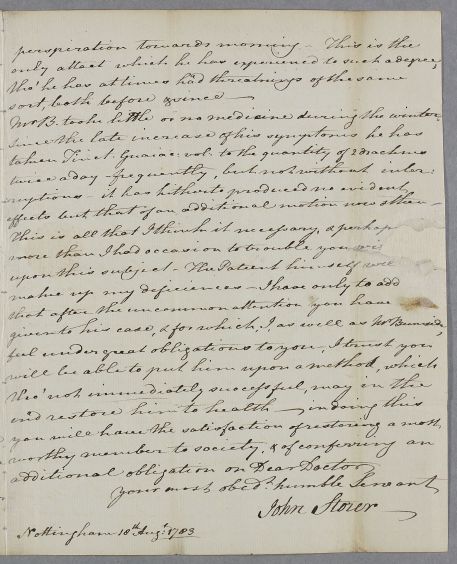 perspiration towards morning – This is the
only attact which he has experienced to such a degree,
tho' he has at times had threatnings of the same
sort, both before & since –
Mr B. took little or no medicine during the winter,
since the late increase of his symptoms he has
taken Tinct. Guaiac: vol: to the quantity of 2 drachms
twice a day – frequently, but not without inter:
:ruptions – it has hitherto produced no evident
effects but that of an additional motion now & then –
This is all that I think it necessary, & perhaps
more than I had occasion to trouble you with
upon this subject – The Patient himself will
make up my deficiences – I have only to add
that after the uncommon attention you have
given to his case, & for which, I, as well as Mr Burnside,
feel under great obligations to you, I trust you
will be able to put him upon a method, which
tho' not immediately successful, may in the
end restore him to health – in doing this
you will have the satisfaction of restoring a most
worthy member to society, & of conferring an
additional obligation on Dear Doctor
your most obedt. humble Servant
John Storer
Nottingham 18th Augt. 1783